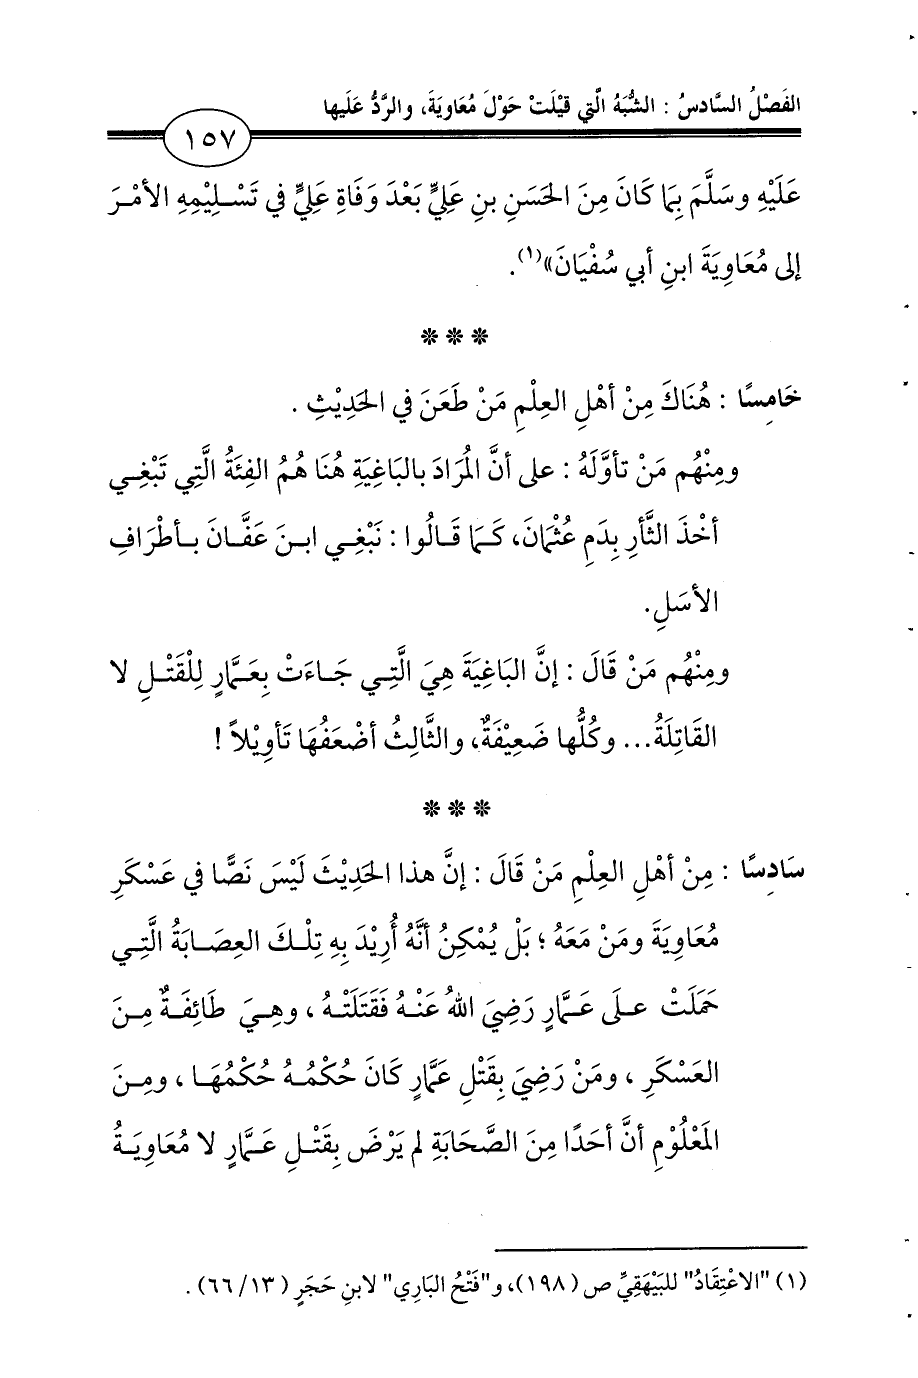 الفَصْلُ السَّادسُ : الشُّبَهُ الَّتي قيْلَتْ حَوْلَ مُعَاويَةَ، والرَّدُّ عَلَيها
١٥٧
عَلَيْهِ وسَلَّمَ بِمَا كَانَ مِنَ الحَسَنِ بنِ عَلِيٍّ بَعْدَ وَفَاةِ عَلِيٍّ في تَسْلِيْمِهِ الأمْرَ
إلى مُعَاوِيَةَ ابنِ أبي سُفْيَانَ»(١).
***
خَامِسًا : هُنَاكَ مِنْ أهْلِ العِلْمِ مَنْ طَعَنَ في الحَدِيْثِ .
ومِنْهُم مَنْ تأوَّلَهُ : على أنَّ المُرَادَ بالبَاغِيَةِ هُنَا هُمُ الفِئَةُ الَّتِي تَبْغِي
أخْذَ الثَّأرِ بِدَمِ عُثْمَانَ، كَمَا قَالُوا : نَبْغِي ابنَ عَفَّانَ بأطْرَافِ
الأسَلِ.
ومِنْهُم مَنْ قَالَ : إنَّ البَاغِيَةَ هِيَ الَّتِي جَاءَتْ بِعَمَّارٍ لِلْقَتْلِ لا
القَاتِلَةُ... وكُلُّها ضَعِيْفَةٌ، والثَّالِثُ أضْعَفُهَا تَأوِيْلاً !
***
سَادِسًا : مِنْ أهْلِ العِلْمِ مَنْ قَالَ : إنَّ هذا الحَدِيْثَ لَيْسَ نَصًّا في عَسْكَرِ
مُعَاوِيَةَ ومَنْ مَعَهُ ؛ بَلْ يُمْكِنُ أنَّهُ أُرِيْدَ بِهِ تِلْكَ العِصَابَةُ الَّتِي
حَمَلَتْ على عَمَّارٍ رَضِيَ اللهُ عَنْهُ فَقَتَلَتْهُ ، وهِيَ طَائِفَةٌ مِنَ
العَسْكَرِ ، ومَنْ رَضِيَ بِقَتْلِ عَمَّارٍ كَانَ حُكْمُهُ حُكْمُهَا ، ومِنَ
المَعْلُوْمِ أنَّ أحَدًا مِنَ الصَّحَابَةِ لم يَرْضَ بِقَتْلِ عَمَّارٍ لا مُعَاوِيَةُ
(١) "الاعْتِقَادُ" للبَيْهَقِيِّ ص (١٩٨)، و"فَتْحُ البَارِي" لابنِ حَجَرٍ (١٣/ ٦٦) .